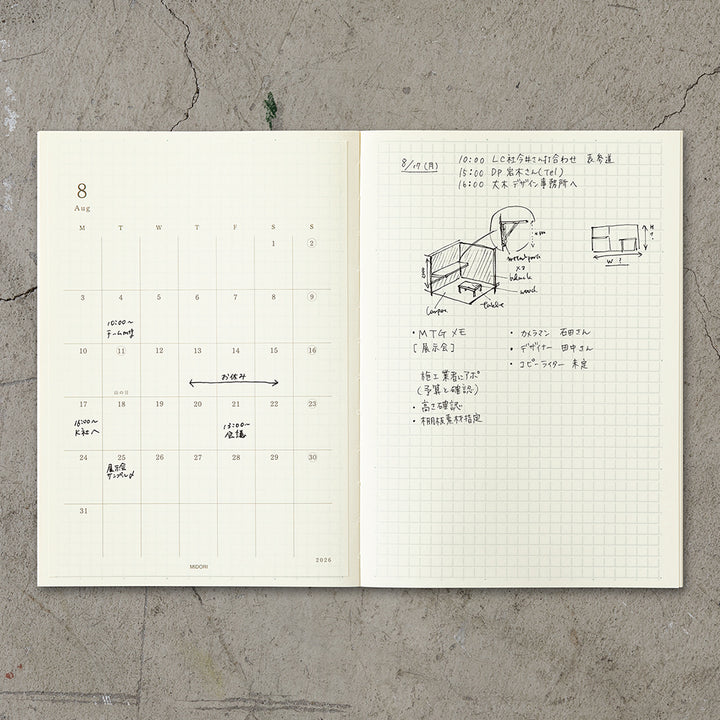 8
Aug
M T W T F S S
1 ②
3 4 5 6 7 8 ⑨
10:00〜
チームMTG
10 ⑪ 12 13 14 15 ⑯
お休み
山の日
17 18 19 20 21 22 23
15:00〜
K社へ
13:00〜
会議
24 25 26 27 28 29 30
展示会
サンプル〆
31
2026
MIDORI
8/17(月)
10:00 LC社今井さん打合わせ 表参道
15:00 DP 岩木さん(Tel)
16:00 大木デザイン事務所へ
black
wood
table
W?
H?
・MTGメモ
[展示会]
施工業者にアポ
(予算と確認)
・高さ確認
・棚板素材指定
・カメラマン 石田さん
・デザイナー 田中さん
・コピーライター 未定